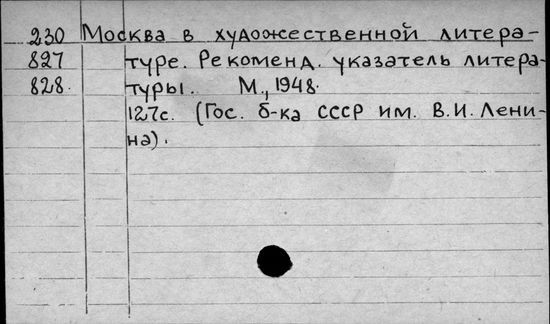 230 Москва в художественной литера-
827 туре. Рекоменд. указатель литера-
828. туры. М., 1948.
127с. (Гос. б-ка СССР им. В.И. Лени-
на).